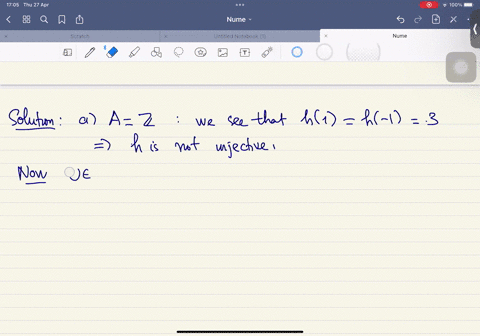 17:05 Thu 27 Apr
100%
Nume
Untitled Notebook (3)
Nume
Solution: a) A = ℤ : we see that h(1) = h(-1) = 3
=> h is not injective.
Now